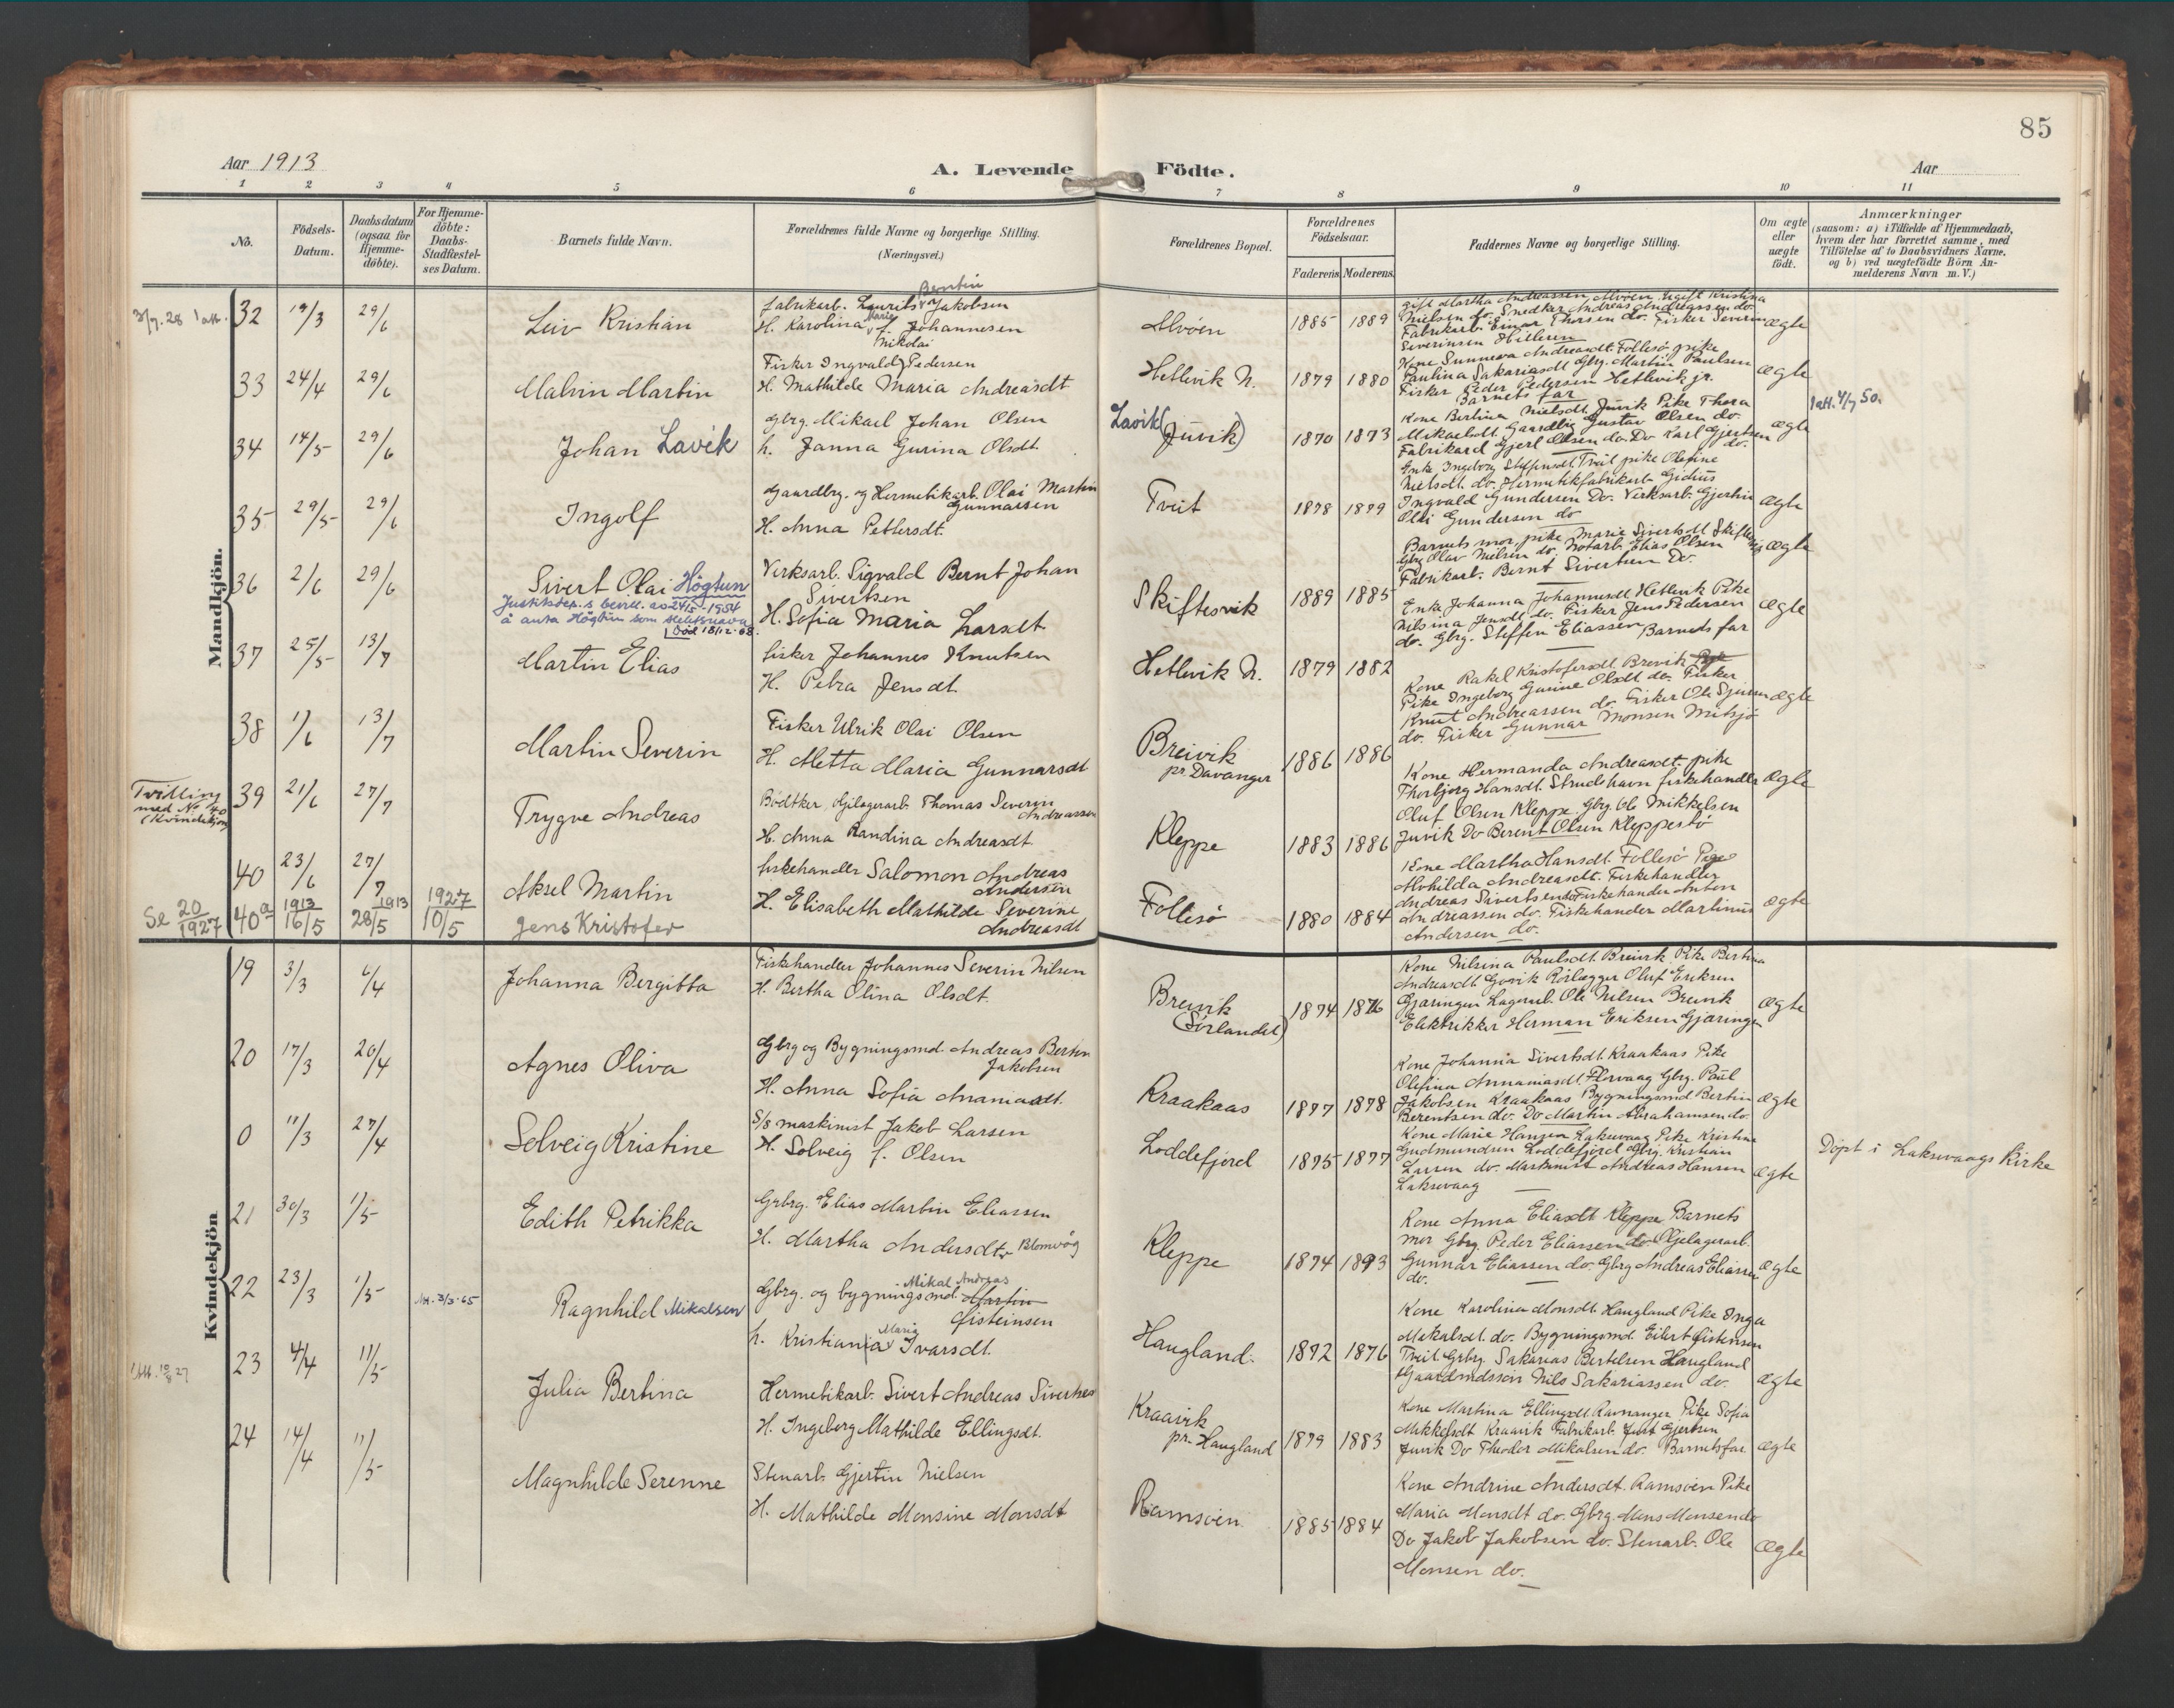 85
Aar 1913
A. Levende Födte.
Aar
1 2 3 4 5 6 7 8 9 10 11
No.
Födsels-Datum.
Daabsdatum (ogsaa for Hjemme-döbte).
For Hjemme-döbte: Daabs-Stadfæstel-ses Datum.
Barnets fulde Navn.
Forældrenes fulde Navne og borgerlige Stilling.
(Næringsvei.)
Forældrenes Bopæl.
Forældrenes Födselsaar.
Faderens. Moderens.
Faddernes Navne og borgerlige Stilling.
Om ægte eller uægte födt.
Anmærkninger
(saasom: a) i Tilfælde af Hjemmedaab,
hvem der har forrettet samme, med
Tilföielse af to Daabsvidners Navne,
og b) ved uægtefödte Börn An-
melderens Navn m. V.)
Mandkjön.
32 19/3 29/6 Leiv Kristian
Bentin
fabrikarb. Laurits Jakobsen
Marie
H. Karolina f. Johannesen
Alvöen 1885 1889
gift Martha Andreassen Alvöen. Ugift Kristina
Nielsen do. Snedker Andreas Andreassen do.
Fabrikarb. Einar Thorsen do. Fisker Severin
Severinsen Hilleren
ægte
33 24/4 29/6 Malvin Martin
Nikolai
Fisker Ingvald Pedersen
H. Mathilde Maria Andreasdt
Hetlevik N. 1879 1880
Kone Sunneva Andreasdt. Follesö pike
Paulina Sakariasdt Gbrg. Martin Paulsen
Fisker Peder Pedersen Hetlevik jr.
Barnets far
ægte
34 14/5 29/6 Johan Lavik
Gbrg. Mikael Johan Olsen
h. Janna Gurina Olsdt.
Lavik (Juvik) 1870 1873
Kone Bertina Nielsdt. Juvik Pike Thora
Mikaelsdt. Gaardbrg Gustav Olsen do.
Fabrikard Gjert Olsen do. Do Karl Gjertsen
do.
ægte
1 att. 4/7 50.
35 29/5 29/6 Ingolf
Gaardbrg. og Hermetikarb. Olai Martin
Gunnarsen
H. Anna Pettersdt.
Tveit 1878 1879
Enke Ingeborg Steffensdt. Tveit pike Olefine
Nielsdt. do. Hermetikfabrikarb. Gidius
Ingvald Gundersen Do. Verksarb. Gjertin
Olai Gundersen do
ægte
36 2/6 29/6 Sivert Olai Högtun
Justitsdep.s bevill. av 24/5-1954
å anta Högtun som slektsnavn
Död 18/12-68.
Verksarb. Sigvald Bernt Johan
Sivertsen
H. Sofia Maria Larsdt.
Skiftesvik 1889 1885
Barnets mor, pike Marie Sivertsdt Skiftesvik
Gbrg Olav Nielsen do. Notarb. Elias Olsen
Fabrikarb. Bernt Sivertsen Do.
ægte
37 25/5 13/7 Martin Elias
fisker Johannes Knutsen
H. Petra Jensdt.
Hetlevik N. 1879 1882
Enke Johanna Johannesdt Hetlevik Pike
Nilsina Jensdt. do. Fisker Jens Pedersen
do. Gbrg. Steffen Eliassen, Barnets far
ægte
38 1/6 13/7 Martin Severin
Fisker Ulrik Olai Olsen
H. Metta Maria Gunnarsdt
Breivik
pr. Davanger 1886 1886
Kone Rakel Kristofersdt. Breivik
Pike Ingeborg Gurine Olsdt do. Fisker
Knut Andreassen do. Fisker Ole
do. Fisker Gunnar Monsen
ægte
Tvilling
med No 40
(Kvindekjön)
39 21/6 27/7 Trygve Andreas
Bödtker, Oljelagerarb. Thomas Severin
Andreassen
H. Anna Randina Andreasdt.
Kleppe 1883 1886
Kone Hermanda Andreasdt. pike
Thorbjorg Hansdt. Strudshavn fiskehandler
Oluf Olsen Kleppe, Gbrg. Ole Mikkelsen
Juvik Do Berent Olsen Kleppestö
ægte
40 23/6 27/7 Aksel Martin
fiskehandler Salomon Andreas
Andersen
H. Elisabeth Mathilde Severine
Andreasdt
Follesö 1880 1884
Kone Martha Hansdt. Follesö Pige
Alvhilda Andreasdt. Fiskehandler
Andreas Sivertsen do Fiskehander Anton
Andreassen do. Fiskehander Martinus
Andersen do.
ægte
Se 20/1927 40a 1913 16/5 1913 28/5 1927 10/5 Jens Kristofer
Kvindekjön
19 3/3 6/4 Johanna Bergitta
Fiskehandler Johannes Severin Nilsen
H. Bertha Olina Olsdt.
Breivik
(Sörlandet) 1874 1876
Kone Nilsina Paulsdt. Breivik. Pike Bertina
Andreasdt Gjövik Rörlægger Oluf Eriksen
Gjæringen Lagerarb. Ole Nilsen Breivik
Elektrikker Herman Eriksen Gjæringen
ægte
20 17/3 20/4 Agnes Oliva
Gbrg og Bygningsmd. Andreas Bertin
Jakobsen
H. Anna Sofia Ananiasdt.
Kraakaas 1877 1878
Kone Johanna Sivertsdt. Kraakaas Pike
Olefina Annaniasdt. Florvaag Gbrg. Paul
Jakobsen Kraakaas Bygningsmd Bertin
Berentsen do. Do Martin Abrahamsen do.
ægte
0 11/3 27/4 Solveig Kristine
S/S maskinist Jakob Larsen
H. Solveig f. Olsen
Loddefjord 1875 1877
Kone Marie Hansen Laksevaag Pike Kristine
Gudmundsen Loddefjord Gbrg. Kristian
Larsen do. Maskinist Andreas Hansen
Laksevaag
ægte
Döpt i Laksevaags Kirke
21 30/3 1/5 Edith Petrikka
Grbrg. Elias Martin Eliassen
H. Martha Andersdtr Blomvåg
Kleppe 1874 1893
Kone Anna Eliasdt Kleppe Barnets
mor Gbrg. Peder Eliassen do. Oljelagerarb.
Gunnar Eliassen do. Gbrg Andreas Eliassen
do.
ægte
22 23/3 1/5 Att. 3/3-65 Ragnhild Mikalsen
Mikal Andreas
Gbrg. og bygningsmd. Martin
Öisteinsen
Marie
h. Kristiania Ivarsdt.
Haugland 1872 1876
Kone Karolina Monsdt. Haugland Pike Inga
Mikalsdt. do. Bygningsmd. Eilert Öistensen
Tveit. Grbrg. Sakarias Bertelsen Haugland
Gaardmdssön Nils Sakariassen do.
ægte
23 4/4 11/5 Julia Bertina
Hermetikarb. Sivert Andreas Sivertsen
H. Ingeborg Mathilde Ellingsdt.
Kraavik
pr. Haugland 1879 1883
Kone Martina Ellingsdt. Ravnanger Pike Sofia
Mikkelsdt Kraavik Fabrikarb. Just Gjertsen
Juvik Do Theodor Mikalsen do. Barnets far
ægte
24 14/4 11/5 Magnhilde Serenne
Stenarb. Gjertin Nielsen
H. Mathilde Monsine Monsdt
Ramsöen 1885 1884
Kone Andrine Andersdt. Ramsöen Pike
Maria Monsdt do. Gbrg. Mons Monsen do
Do Jakob Jakobsen do. Stenarb. Ole
Monsen do.
ægte